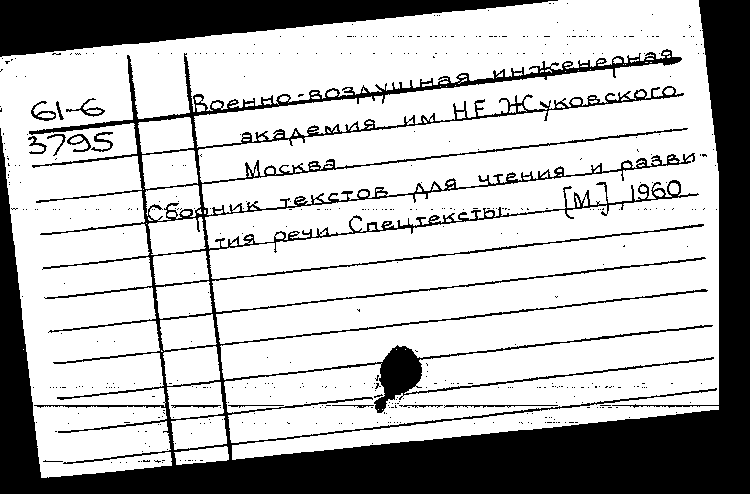 61-6
3795
Военно-воздушная инженерная
академия им Н.Е. Жуковского
Москва
Сборник текстов для чтения и разви-
тия речи. Спецтексты. [М.], 1960